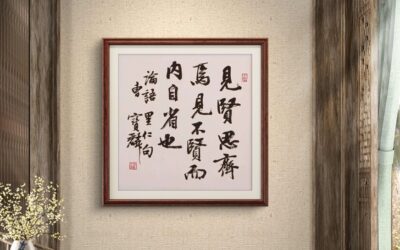 見賢思齊
焉見不賢而
內自省也
論語里仁句
曹寶麟